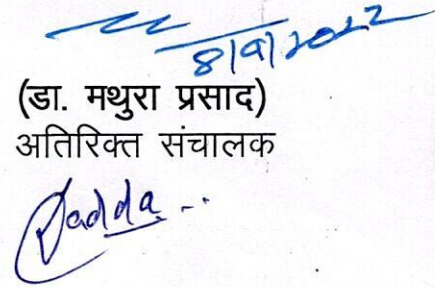 8/9/2022
(डा. मथुरा प्रसाद)
अतिरिक्त संचालक